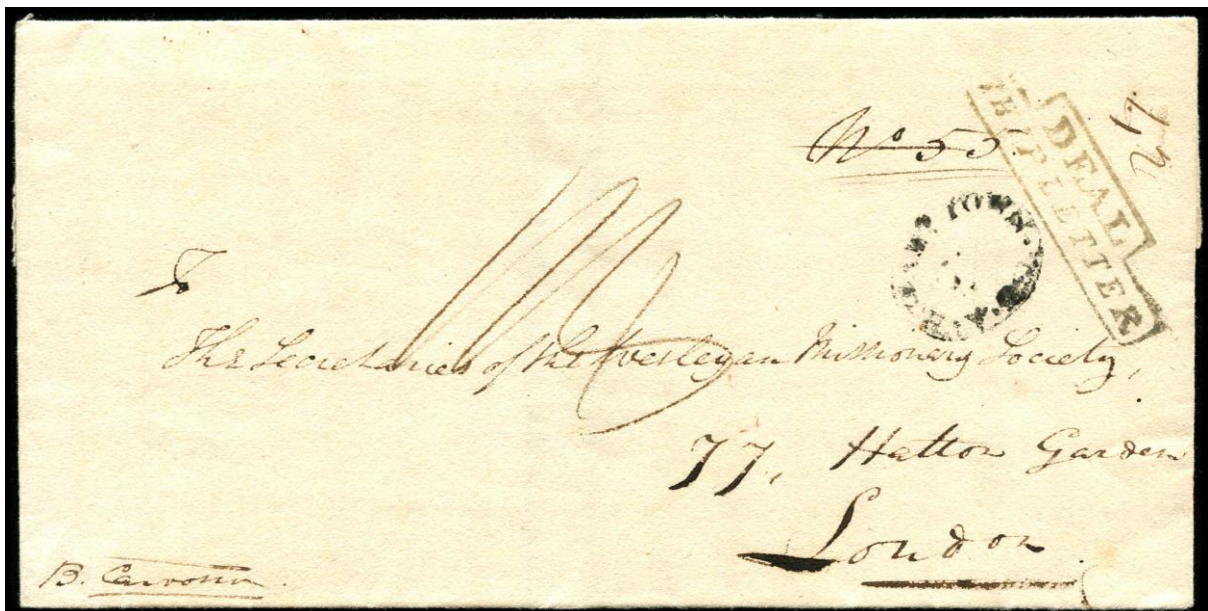 No 55.
DEAL
SHIP LETTER
To
The Secretaries of the Wesleyan Missionary Society,
77, Hatton Garden
London
B. Carvosso